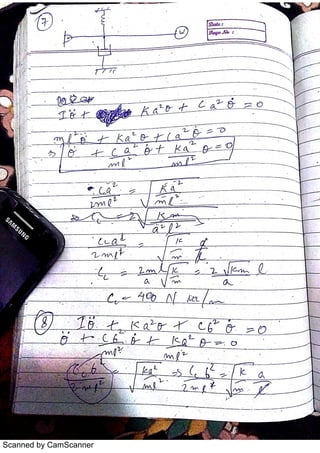 7
Date :
Page No. :
W
Iθ̈ + Ka²θ + Ca²θ̇ = 0
ml²θ̈ + Ka²θ + Ca²θ̇ = 0
⇒ θ̈ + Ca²/ml² θ̇ + Ka²/ml² θ = 0
Cca²/2ml² = √(Ka²/ml²)
Cca²/2ml² = √(K/m) a/l
Cc = 2ml/a √(K/m) = 2√(km) l/a
Cc = 400 N
SAMSUNG
8
Iθ̈ + Ka²θ + Cb²θ̇ = 0
θ̈ + Cb²/ml² θ̇ + Ka²/ml² θ = 0
Ccb²/2ml² = √(ka²/ml²) ⇒ Ccb²/2ml² = √(K/m) a/l
Scanned by CamScanner